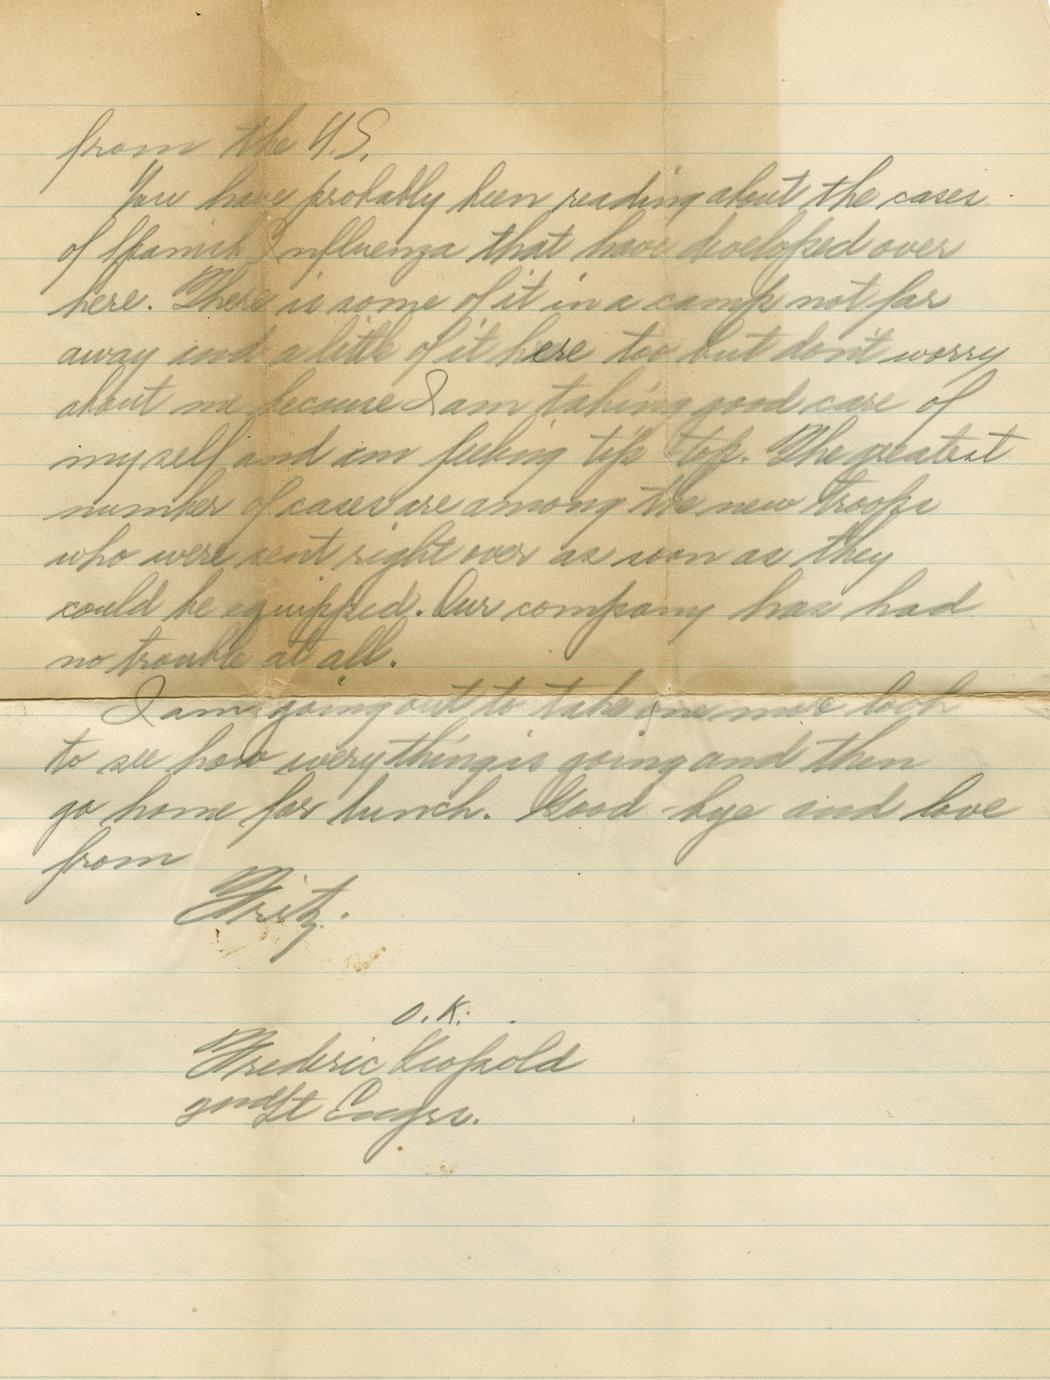 from the U.S.
You have probably been reading about the cases
of Spanish Influenza that have developed over
here. There is some of it in a camp not far
away and a little of it here too but don't worry
about me because I am taking good care of
myself and am feeling tip top. The greatest
number of cases are among the new troops
who were sent right over as soon as they
could be equipped. Our company has had
no trouble at all.
I am going out to take one more look
to see how everything is going and then
go home for lunch. Good-bye and love
from
Fritz.
O.K.
Frederic Leopold
2nd Lt Engrs.